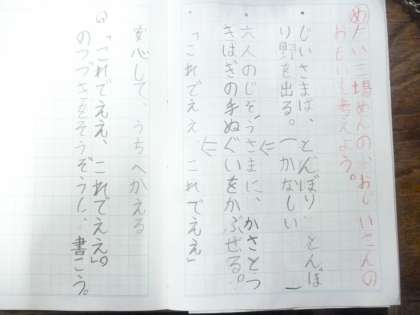 め 三場めんの、おじいさんの
たいしょう。
・じいさまは、とんぼりとんぼ
り野を出る。(かなしい)
・六人のじぞうさまに、かさとつ
きはぎの手ぬぐいをかぶせる。
・「これでええ、これでええ」
安心して、うちへかえる
「これでええ、これでええ。」
のつづきをそうぞうし、書こう。